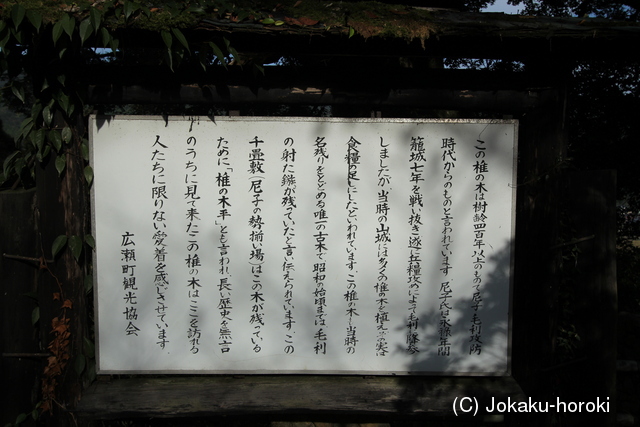 この椎の木は樹齢四百年以上のもので尼子、毛利攻防
時代からのものと言われています。尼子氏は永禄年間
籠城七年を戦い抜き遂に兵糧攻めによって毛利に降参
しましたが、当時の山城には多くの椎の木を植えその実は
食糧の足しにしたといわれています。この椎の木は当時の
名残りをとどめる唯一の古木で昭和の始頃までは毛利
の射た鏃が残っていたと言い伝えられています。この
千畳敷(尼子の勢揃い場)はこの木が残っている
ために「椎の木平」とも言われ、長い歴史を無言
のうちに見て来たこの椎の木はここを訪れる
人たちに限りない愛着を感じさせています
広瀬町観光協会
(C) Jokaku-horoki